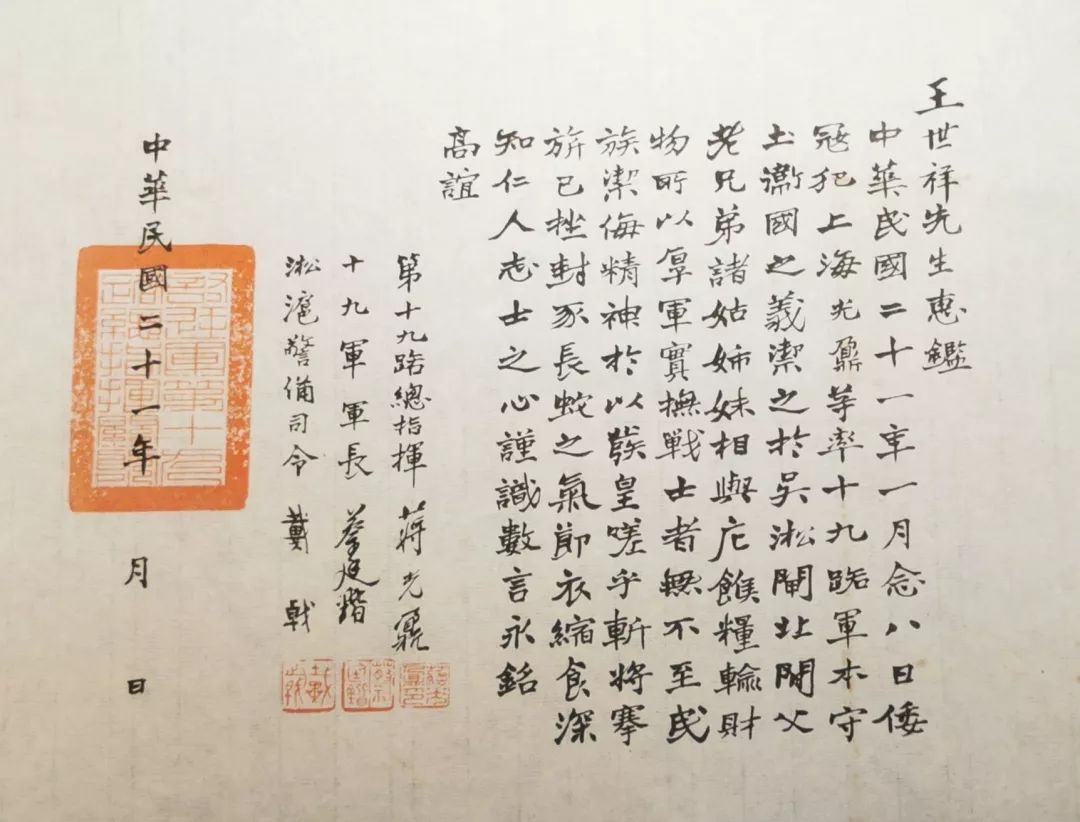 王世祥先生惠鑑
中華民國二十一年一月念八日倭
寇犯上海光鼐等率十九路軍本守
土衞國之義潔之於吳淞閘北閒父
老兄弟諸姑姊妹相與庀餱糧輸財
物所以厚軍實撫戰士者無不至民
族潔侮精神於以發皇嗟乎斬將搴
旂已挫封豕長蛇之氣節衣縮食深
知仁人志士之心謹識數言永銘
高誼
第十九路總指揮 蔣光鼐
十九軍軍長 蔡廷鍇
淞滬警備司令 戴戟
中華民國二十一年 月 日